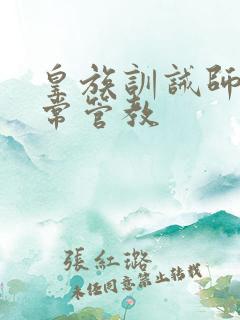 皇族訓誡師日
常管教
張紅璐
未经同意禁止转载